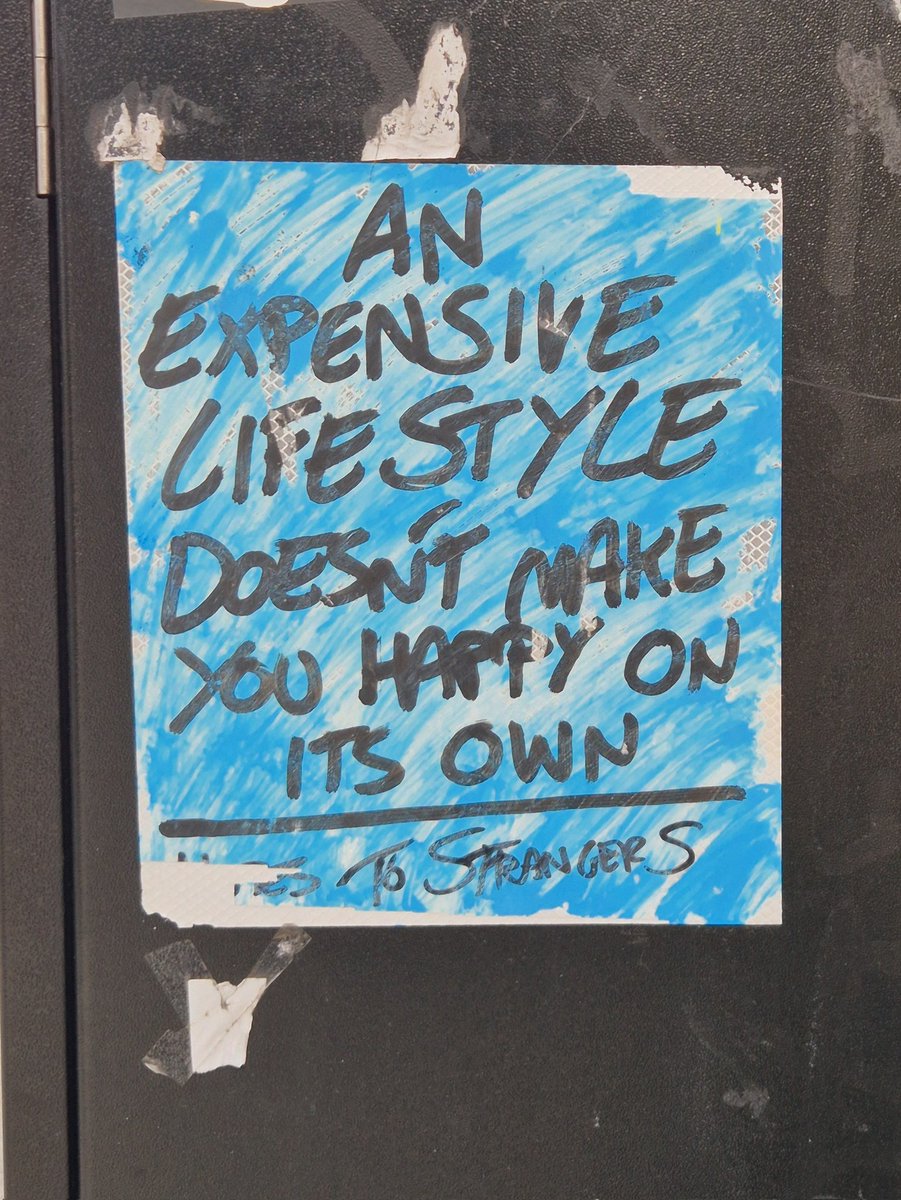 AN
EXPENSIVE
LIFESTYLE
DOESN'T MAKE
YOU HAPPY ON
ITS OWN
TO STRANGERS